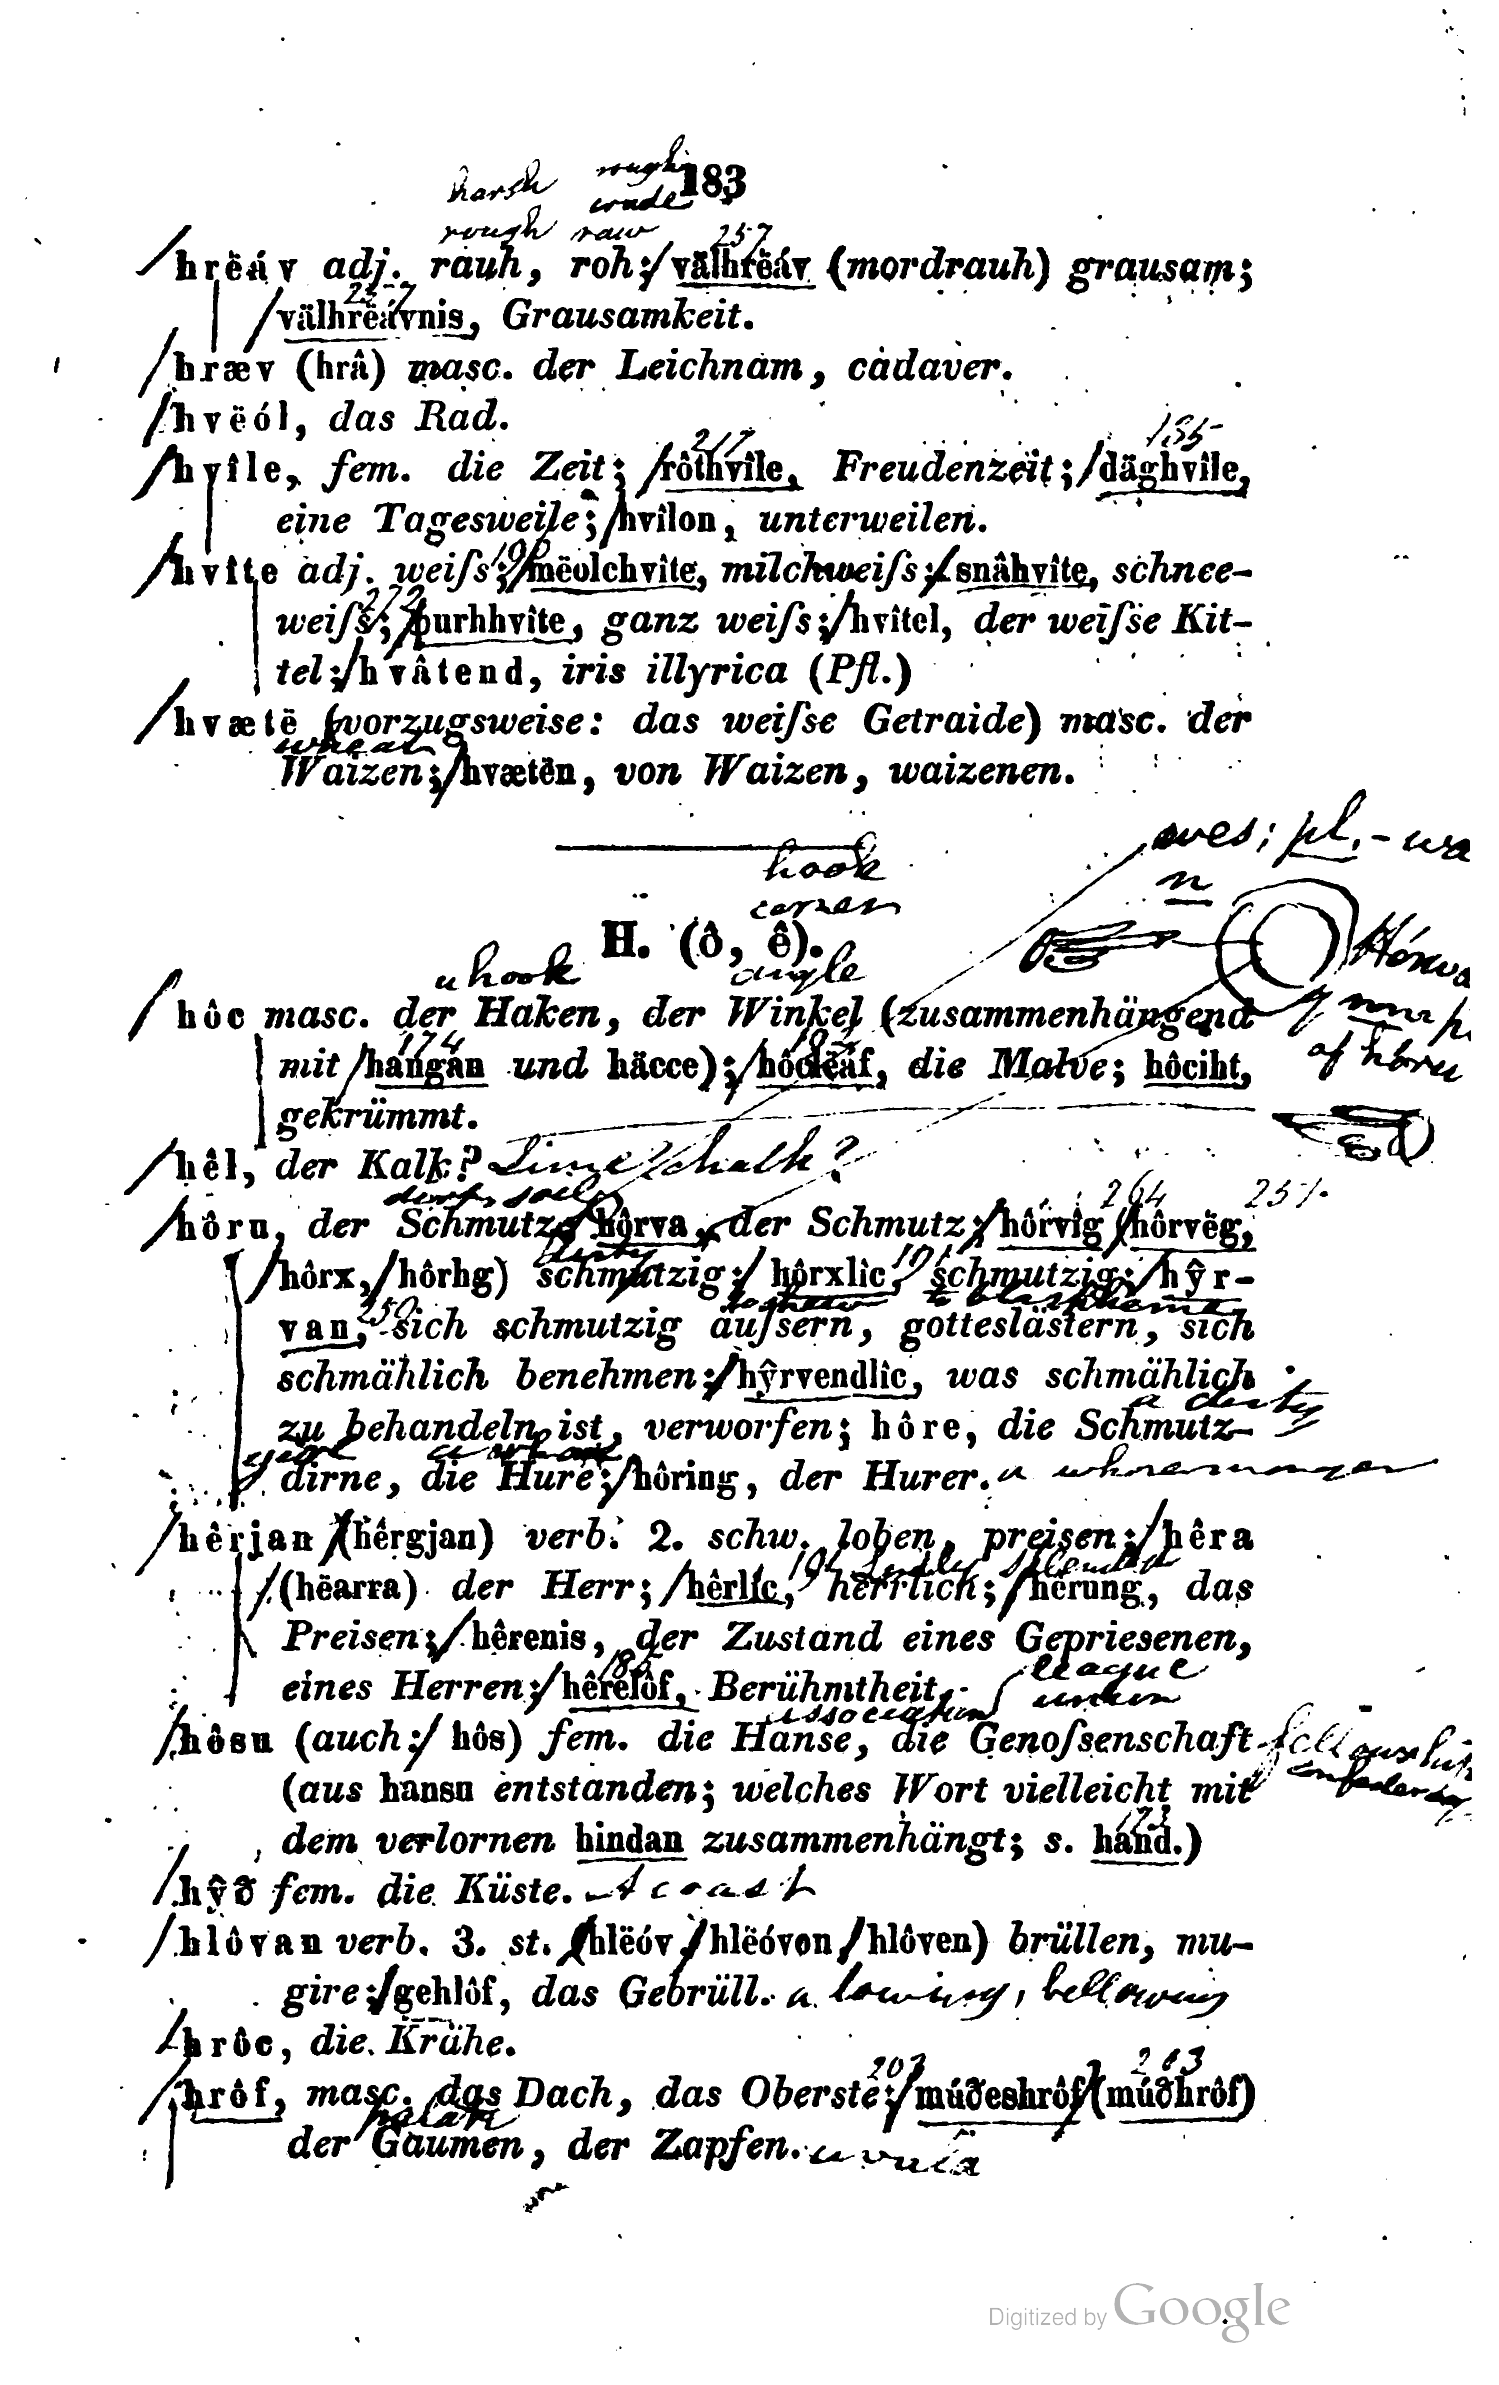 harsh rough
183
crude
rough raw 257
hrëáv adj. rauh, roh; välhrëáv (mordrauh) grausam;
257
välhrëávnis, Grausamkeit.
hræv (hrâ) masc. der Leichnam, cadaver.
hvëól, das Rad.
217 185
hvîle, fem. die Zeit; rôthvîle, Freudenzeit; däghvîle,
eine Tagesweile; hvîlon, unterweilen.
190
hvîte adj. weiſs; mëolchvîte, milchweiſs; snâhvîte, schnee-
272
weiſs; þurhhvîte, ganz weiſs; hvîtel, der weiſse Kit-
tel; hvâtend, iris illyrica (Pfl.)
hvætë (vorzugsweise: das weiſse Getraide) masc. der
wheat
Waizen; hvætën, von Waizen, waizenen.
wes; pl. - wa
hook n
corner
H. (ô, ê).
a hook angle
hôc masc. der Haken, der Winkel (zusammenhängend
174 182
mit hangan und häcce); hôclëáf, die Malve; hôciht,
of hôru
gekrümmt.
hêl, der Kalk? Lime/chalk?
264 251.
hôru, der Schmutz; hôrva, der Schmutz; hôrvîg (hôrvëg,
dirty 191
hôrx, hôrhg) schmutzig; hôrxlîc, schmutzig; hŷr-
250 to blaspheme
van, sich schmutzig äuſsern, gotteslästern, sich
schmählich benehmen; hŷrvendlîc, was schmählich
a dirty
zu behandeln ist, verworfen; hôre, die Schmutz-
girl a whore
dirne, die Hure; hôring, der Hurer. a whoremonger
hêrjan (hêrgjan) verb. 2. schw. loben, preisen; hêra
191 Lordly splendid
(hëarra) der Herr; hêrlíc, herrlich; hêrung, das
Preisen; hêrenis, der Zustand eines Gepriesenen,
180 league
eines Herren; hêrelôf, Berühmtheit.
association union
hôsu (auch; hôs) fem. die Hanse, die Genoſsenschaft fellowship
(aus hansu entstanden; welches Wort vielleicht mit
173
dem verlornen hindan zusammenhängt; s. hand.)
hŷð fem. die Küste. A coast
hlôvan verb. 3. st. (hlëóv, hlëóvon, hlôven) brüllen, mu-
gire; gehlôf, das Gebrüll. a lowing, bellowing
hrôc, die Krähe.
203 203
hrôf, masc. das Dach, das Oberste; múðeshrôf (múðhrôf)
palate
der Gaumen, der Zapfen. uvula
Digitized by Google